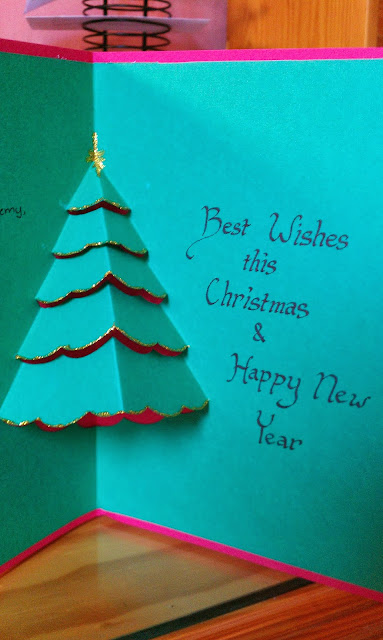 Best Wishes
this
Christmas
&
Happy New
Year